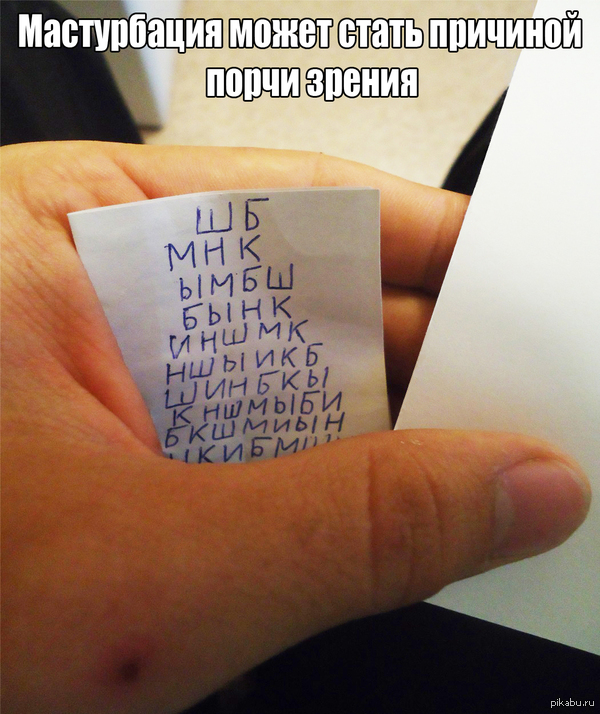 Мастурбация может стать причиной
порчи зрения
Ш Б
М Н К
Ы М Б Ш
Б Ы Н К
И Н Ш М К
Н Ш Ы И К Б
Ш И Н Б К Ы
К Н Ш М Ы Б И
Б К Ш М И Ы Н
К И Б М
pikabu.ru